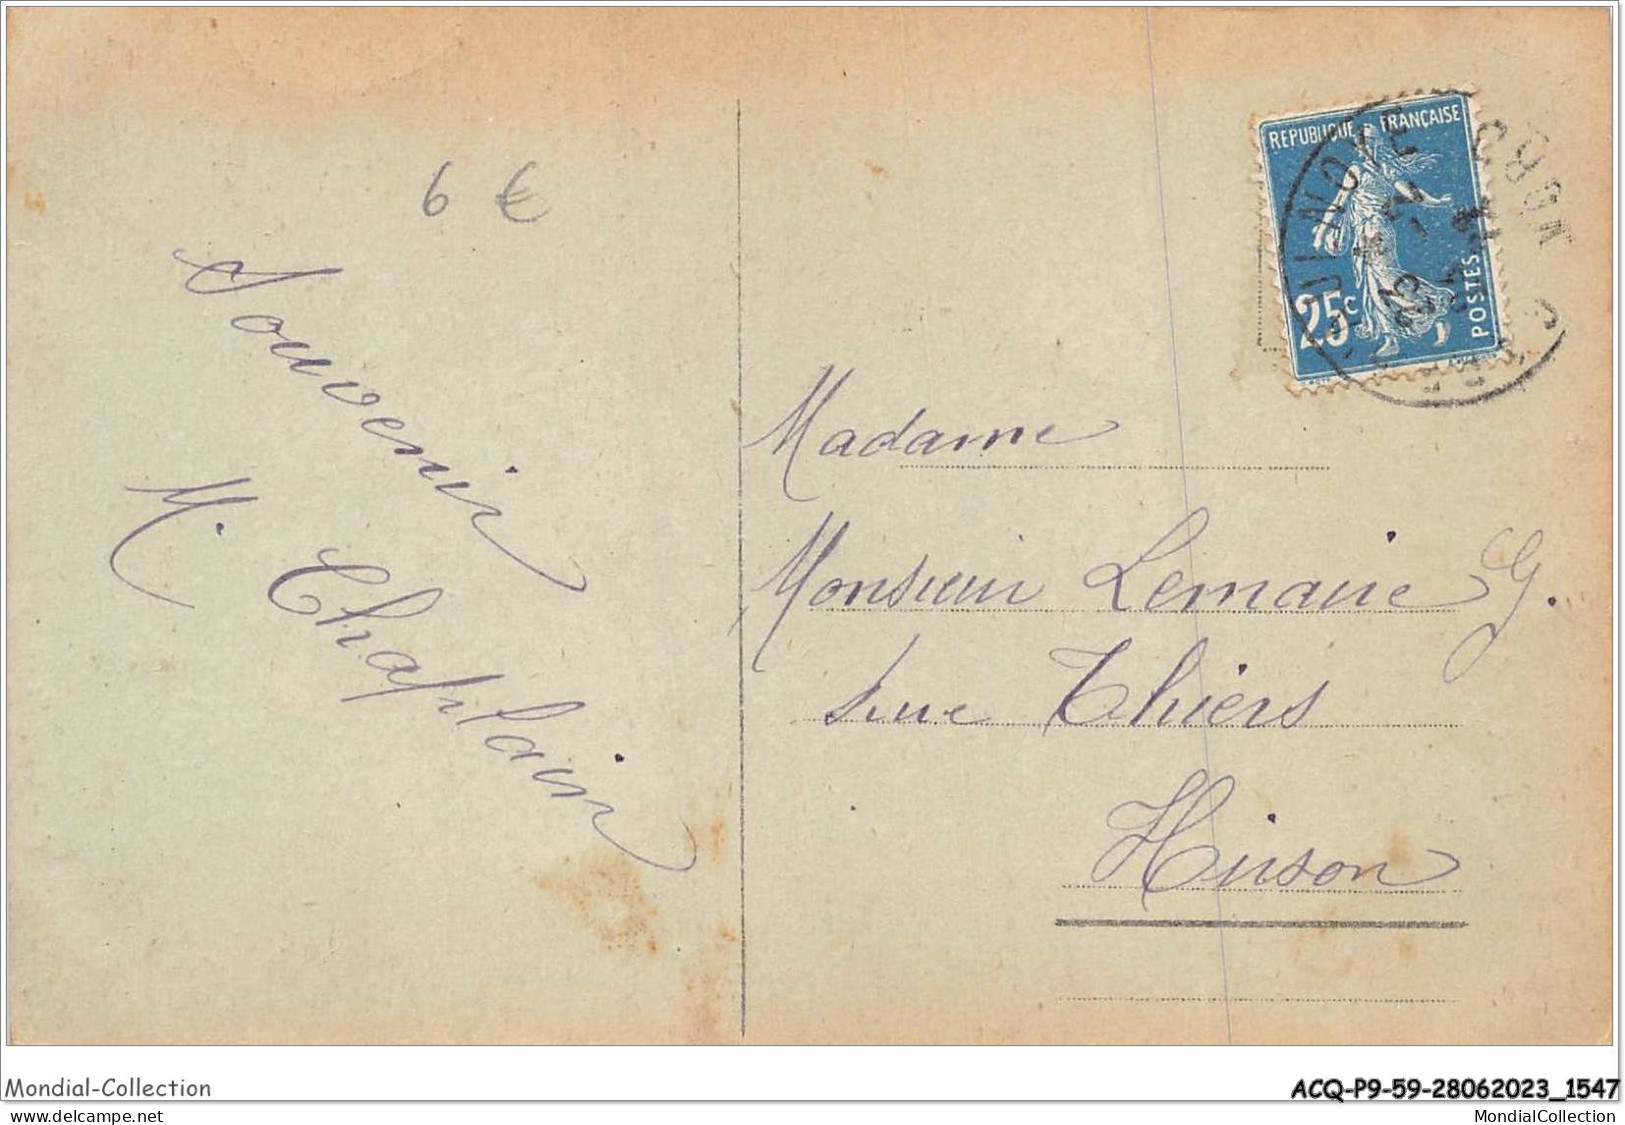 6 €
Souvenir
M. Chaplain
REPUBLIQUE FRANÇAISE
25c
POSTES
Madame
Monsieur Lemaire G.
rue Thiers
Hirson
Mondial-Collection
ACQ-P9-59-28062023_1547
www.delcampe.net
MondialCollection